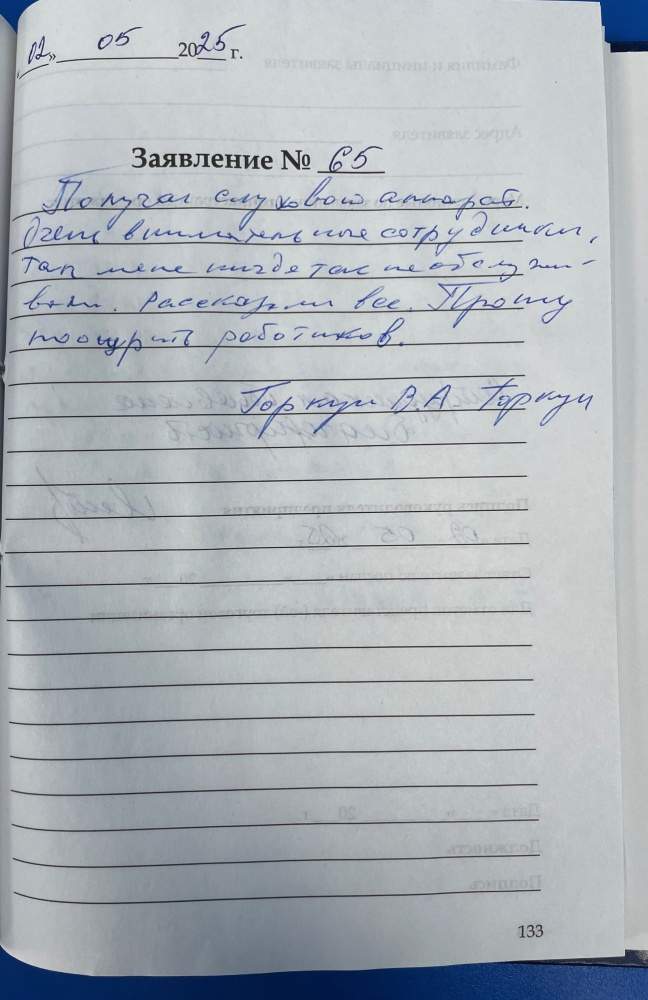 «02» 05 2025 г.
Заявление № 65
Получал слуховой аппарат.
Очень внимательные сотрудники,
так мене нигде так не обслужи-
вали. Рассказали все. Прошу
поощрить работников.
Горкун В А Горкун
133